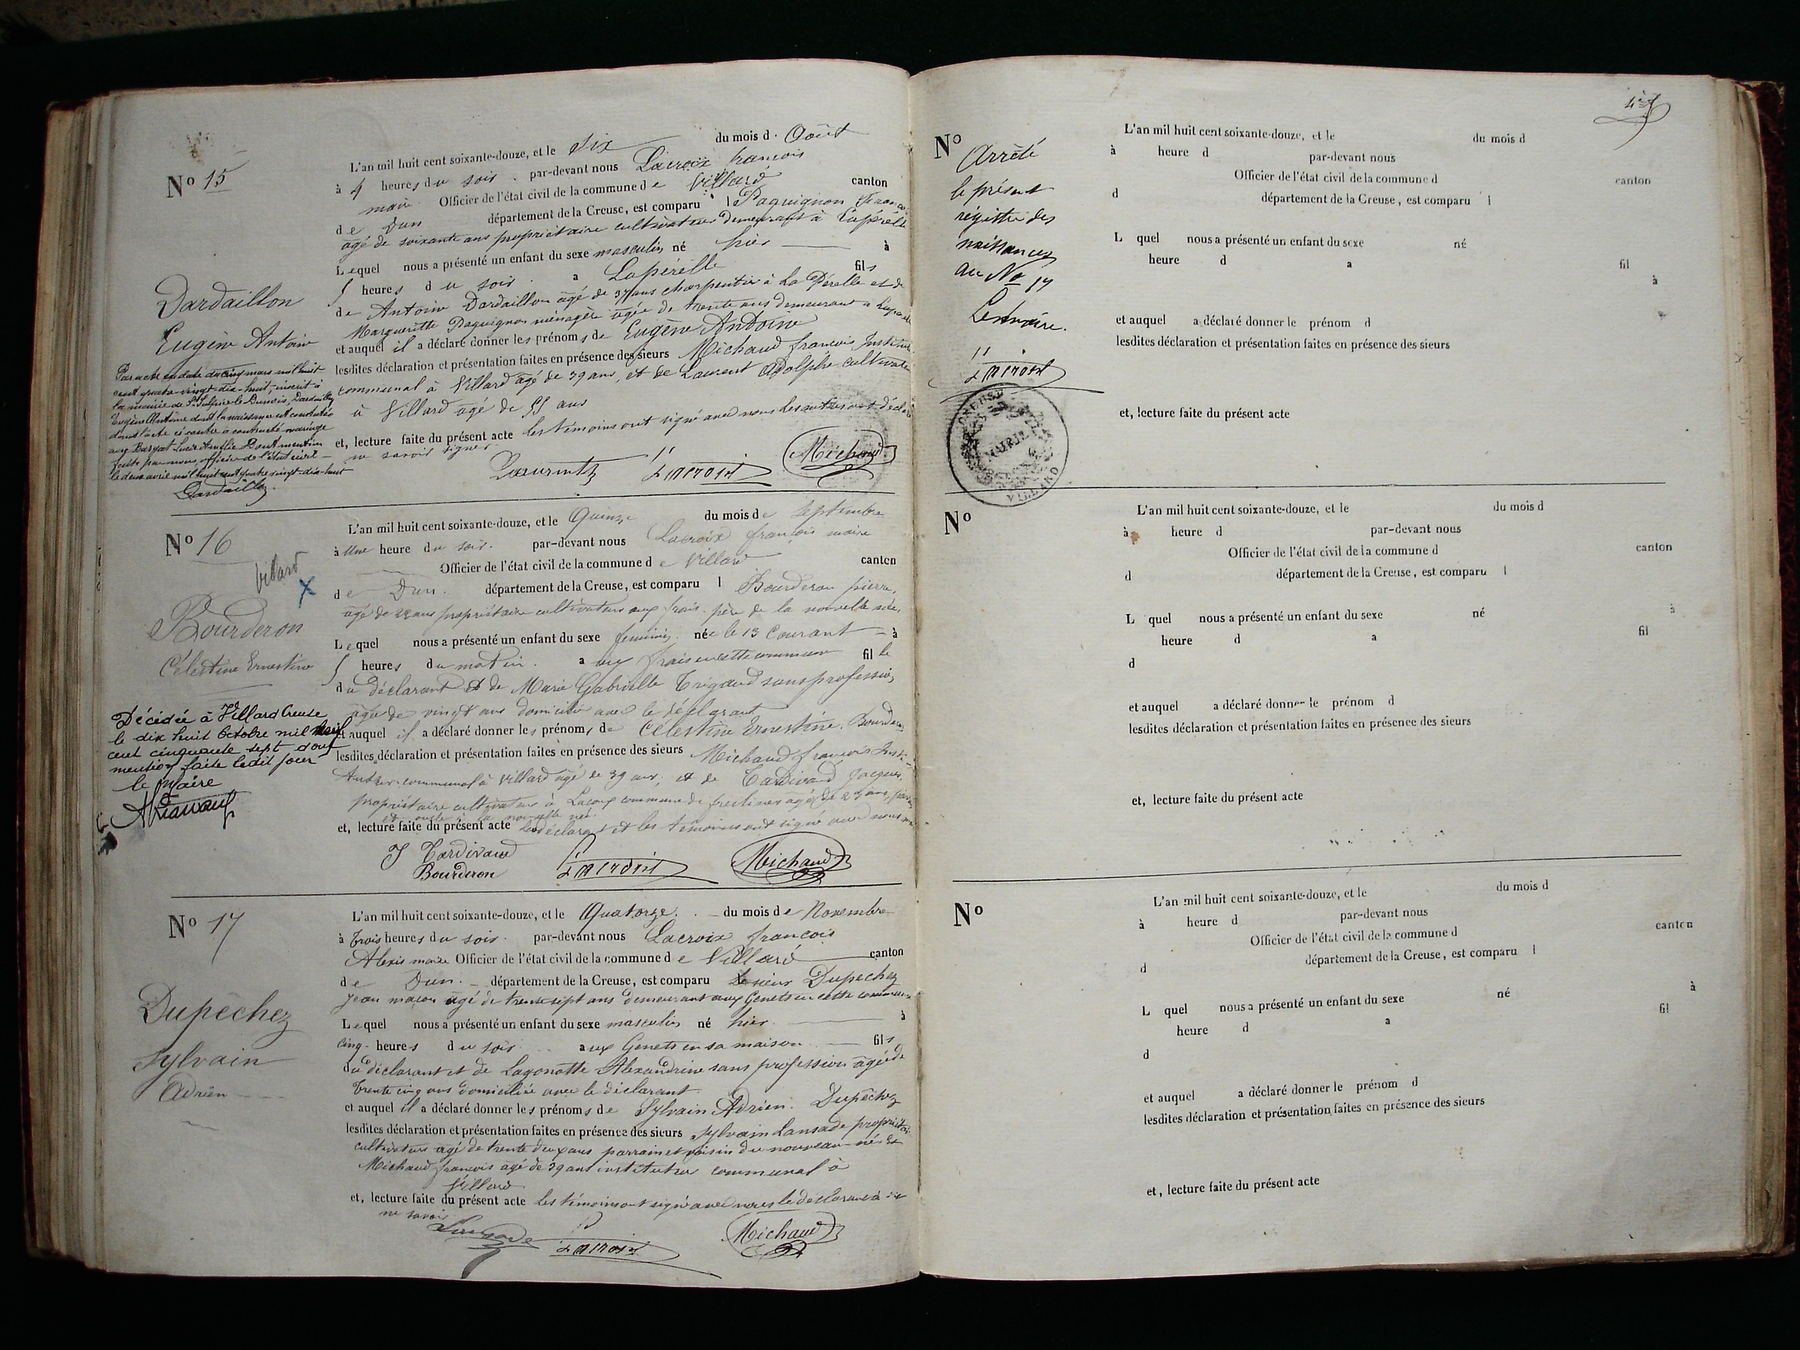 No 15
Dardaillon
Eugène Antoine
Par acte en date du cinq mars mil huit
cent quatre-vingt-dix-huit, inscrit à
la mairie de St Sulpice-le-Dunois, Dardaillon
Eugène Antoine dont la naissance est constatée
dans l'acte ci-contre a contracté mariage
avec Lucie Amélie Dont mention
faite par nous officier de l'état civil
le deux avril mil huit cent quatre vingt-dix-huit
Dardaillon
L'an mil huit cent soixante-douze, et le Six du mois d. Août
à 4 heures du soir. par-devant nous Lacroix françois
maire Officier de l'état civil de la commune de Villard canton
de Dun département de la Creuse, est comparu l Paquignon
agé de soixante ans propriétaire cultivateur demeurant à Lapérelle
Lequel nous a présenté un enfant du sexe masculin né hier à
5 heures du soir. a Lapérelle fils
de Antoine Dardaillon agé de 37 ans charpentier à La Pérelle et de
Marguerite Paquignon ménagère agée de trente ans demeurant a
et auquel il a déclaré donner les prénoms de Eugène Antoine
lesdites déclaration et présentation faites en présence des sieurs Michaud françois Institut
communal à Villard agé de 39 ans, et de Laurent Adolphe cultivateur
à Villard agé de 55 ans
et, lecture faite du présent acte les témoins ont signé avec nous
ne savoir signer
Lacroix Michaud
No 16
Villard
X
Bourderon
Célestine Ernestine
Décédée à Villard Creuse
le dix huit Octobre mil neuf
cent cinquante sept dont
mention faite ledit jour
le Maire
L'an mil huit cent soixante-douze, et le Quinze du mois de Septembre
à Une heure du soir. par-devant nous Lacroix françois maire
Officier de l'état civil de la commune de Villard canton
de Dun. département de la Creuse, est comparu l Bourderon pierre,
agé de ans propriétaire cultivateur aux frais. père de la nouvelle née
Lequel nous a présenté un enfant du sexe feminin née le 13 Courant à
5 heures du matin. a aux frais en cette commune fille
du déclarant et de Marie Gabrielle Trigaud sans profession,
agée de vingt ans domiciliée avec le déclarant
et auquel il a déclaré donner les prénoms de Célestine Ernestine, Bourderon
lesdites déclaration et présentation faites en présence des sieurs Michaud françois Insti-
tuteur communal à Villard agé de 39 ans, et de Tardivaud Jacques,
propriétaire cultivateur à commune de agé de
et oncle à la nouvelle née.
et, lecture faite du présent acte les témoins ont signé avec nous
J Tardivaud
Bourderon Lacroix Michaud
No 17
Dupêchez
Sylvain
Adrien
L'an mil huit cent soixante-douze, et le Quatorze. du mois de Novembre
à Trois heures du soir. par-devant nous Lacroix françois
Alexis maire Officier de l'état civil de la commune de Villard canton
de Dun. département de la Creuse, est comparu Le sieur Dupechez
Jean maçon agé de trente sept ans demeurant aux Genets en cette commune
Lequel nous a présenté un enfant du sexe masculin né hier. à
cinq heures du soir aux Genets en sa maison fils
du déclarant et de Lagonotte Alexandrine sans profession agée de
trente cinq ans domiciliée avec le déclarant
et auquel il a déclaré donner les prénoms de Sylvain Adrien. Dupêchez
lesdites déclaration et présentation faites en présence des sieurs Sylvain Lansade propriétaire
cultivateur agé de trente deux ans parrain et voisin du nouveau-né et
Michaud françois agé de 39 ans instituteur communal à
Villard
et, lecture faite du présent acte les témoins ont signé avec nous le déclarant a dit
ne savoir
Lansade Lacroix Michaud
No
Arrêté
le présent
régistre des
naissances
au No 17
Le maire.
Lacroix
CREUSE
MAIRIE
VILLARD
L'an mil huit cent soixante-douze, et le du mois d
à heure d par-devant nous
Officier de l'état civil de la commune d canton
d département de la Creuse, est comparu l
L quel nous a présenté un enfant du sexe né
heure d a fil
à
et auquel a déclaré donner le prénom d
lesdites déclaration et présentation faites en présence des sieurs
et, lecture faite du présent acte
No
L'an mil huit cent soixante-douze, et le du mois d
à heure d par-devant nous
Officier de l'état civil de la commune d canton
d département de la Creuse, est comparu l
L quel nous a présenté un enfant du sexe né à
heure d a fil
d
et auquel a déclaré donner le prénom d
lesdites déclaration et présentation faites en présence des sieurs
et, lecture faite du présent acte
No
L'an mil huit cent soixante-douze, et le du mois d
à heure d par-devant nous
Officier de l'état civil de la commune d canton
d département de la Creuse, est comparu l
L quel nous a présenté un enfant du sexe né à
heure d a fil
d
et auquel a déclaré donner le prénom d
lesdites déclaration et présentation faites en présence des sieurs
et, lecture faite du présent acte